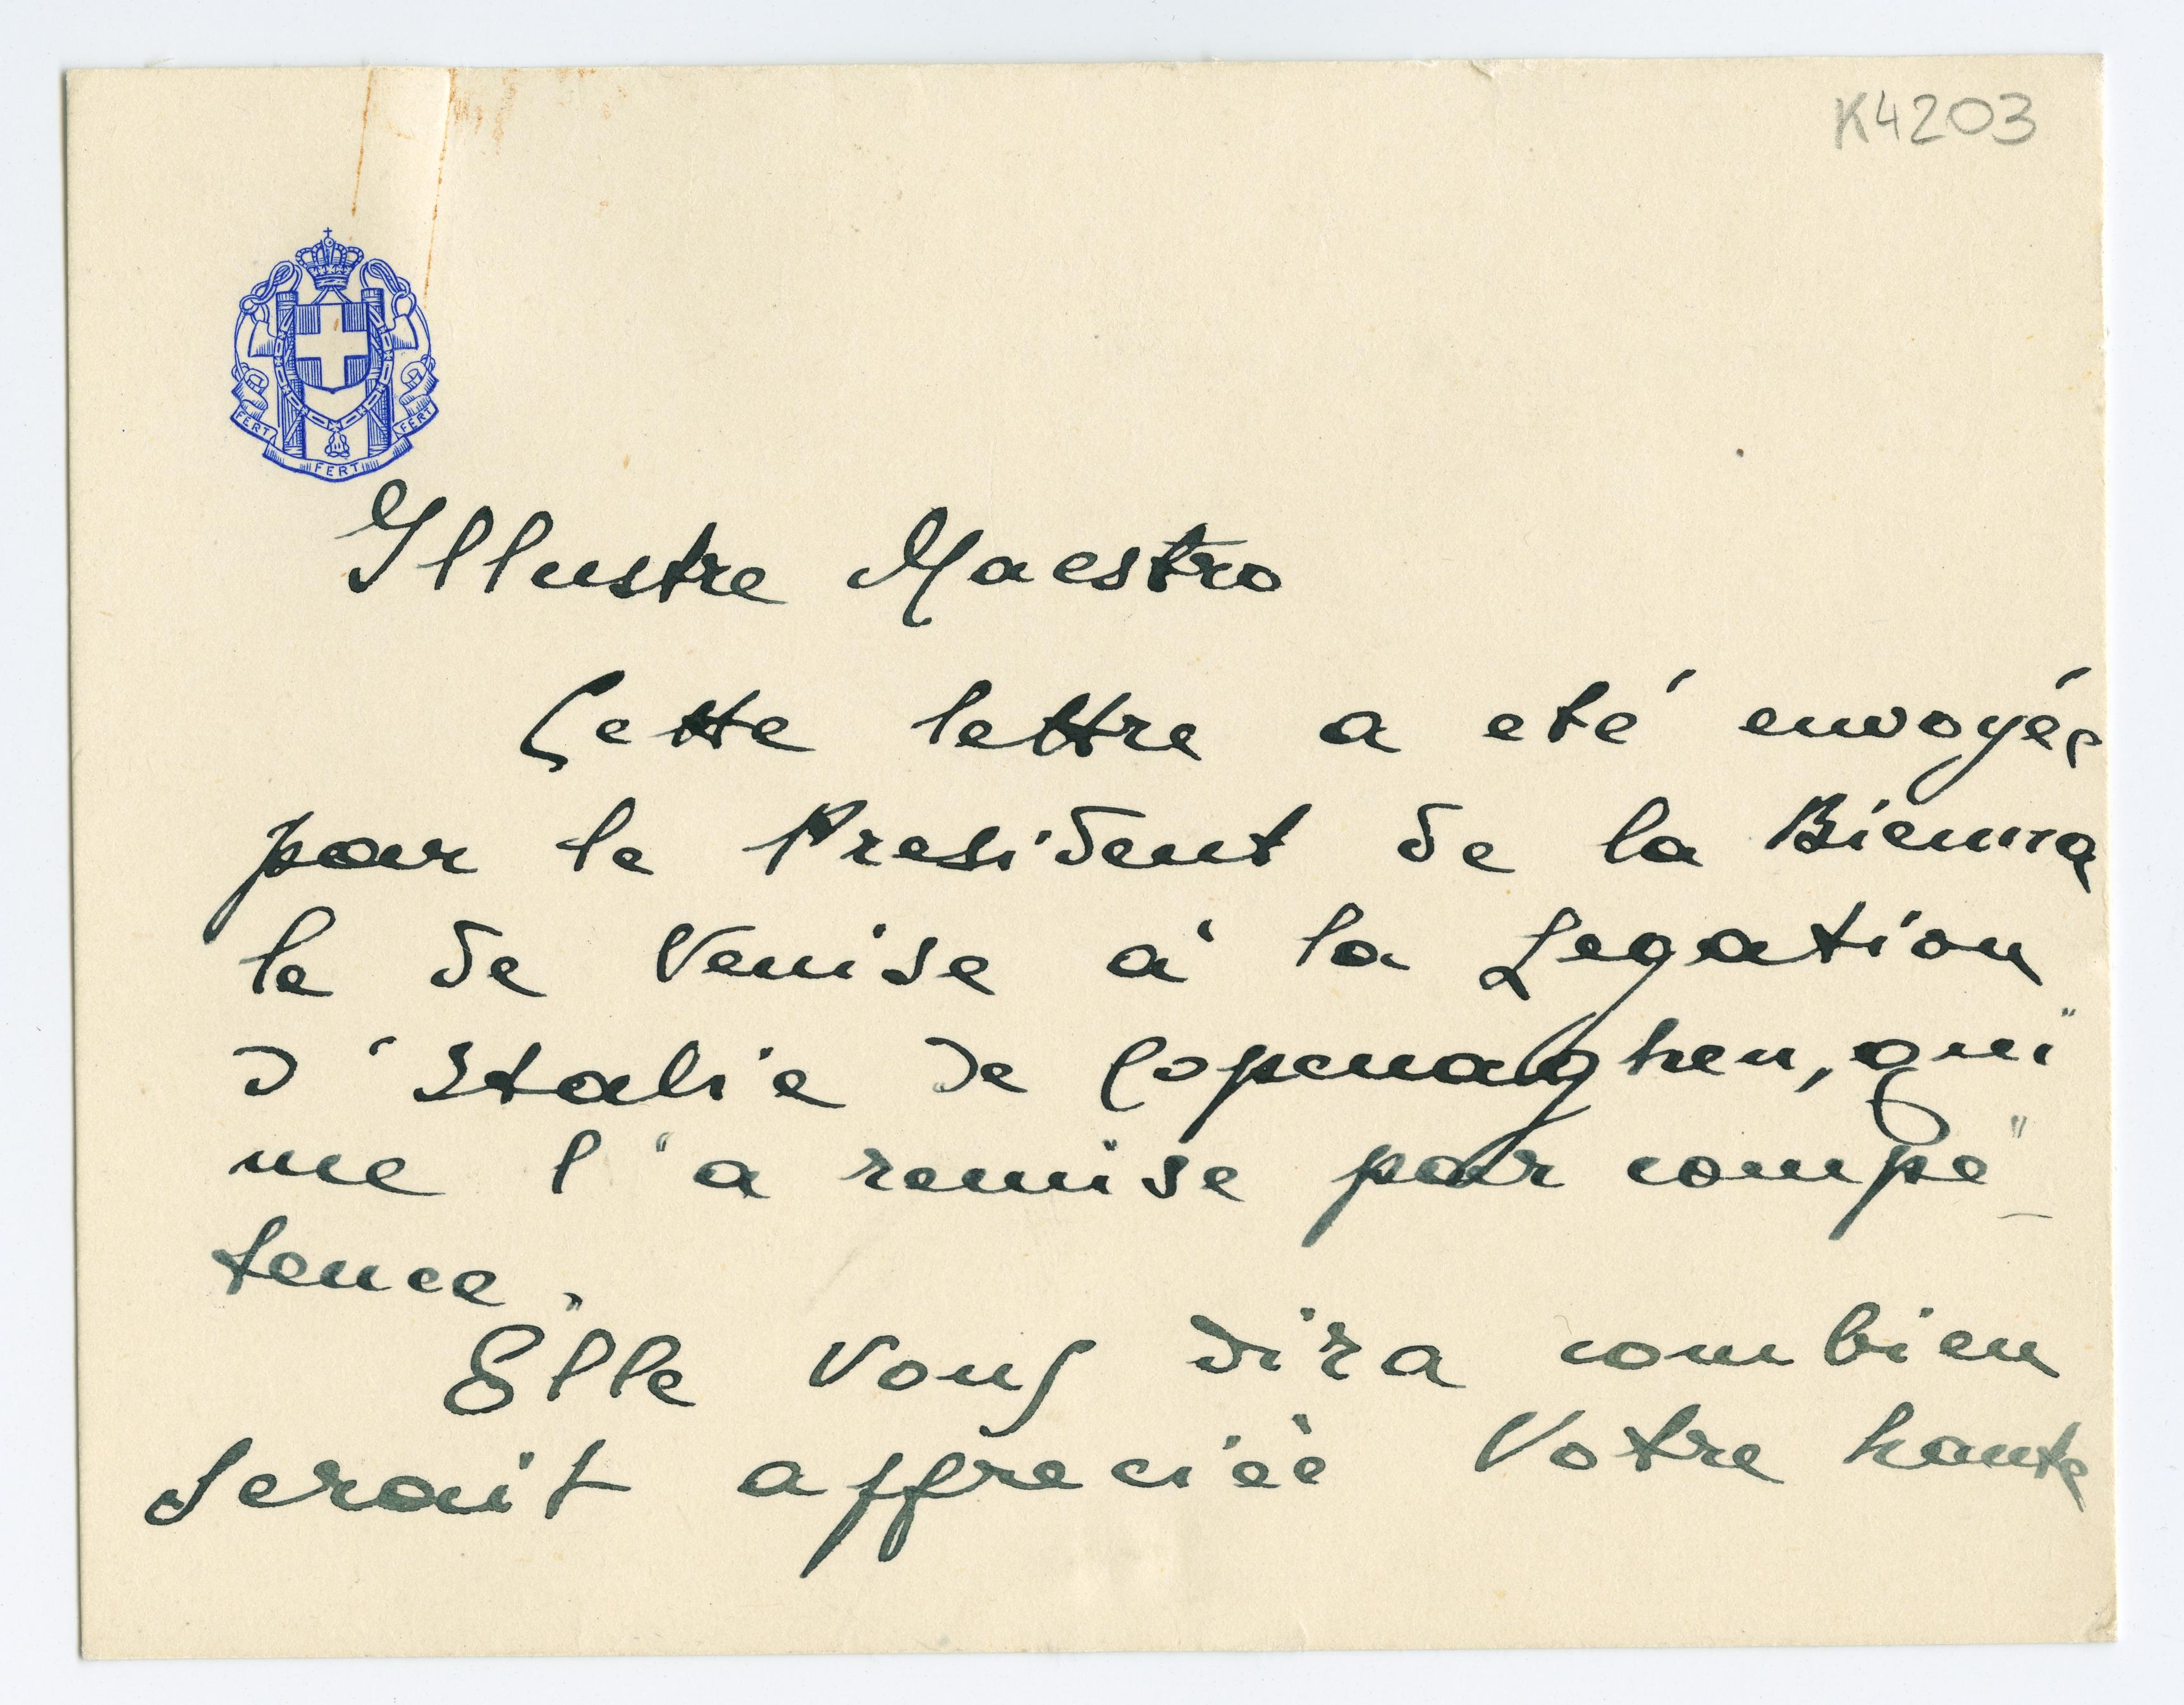 K4203
FERT FERT FERT
Illustre Maestro
Cette lettre a eté envoyée
par le President de la Bienna
le de Venise à la Legation
d'Italie de Copenaghen, qui
me l'a remise par compe
tence.
Elle vous dira combien
serait appreciée Votre haute